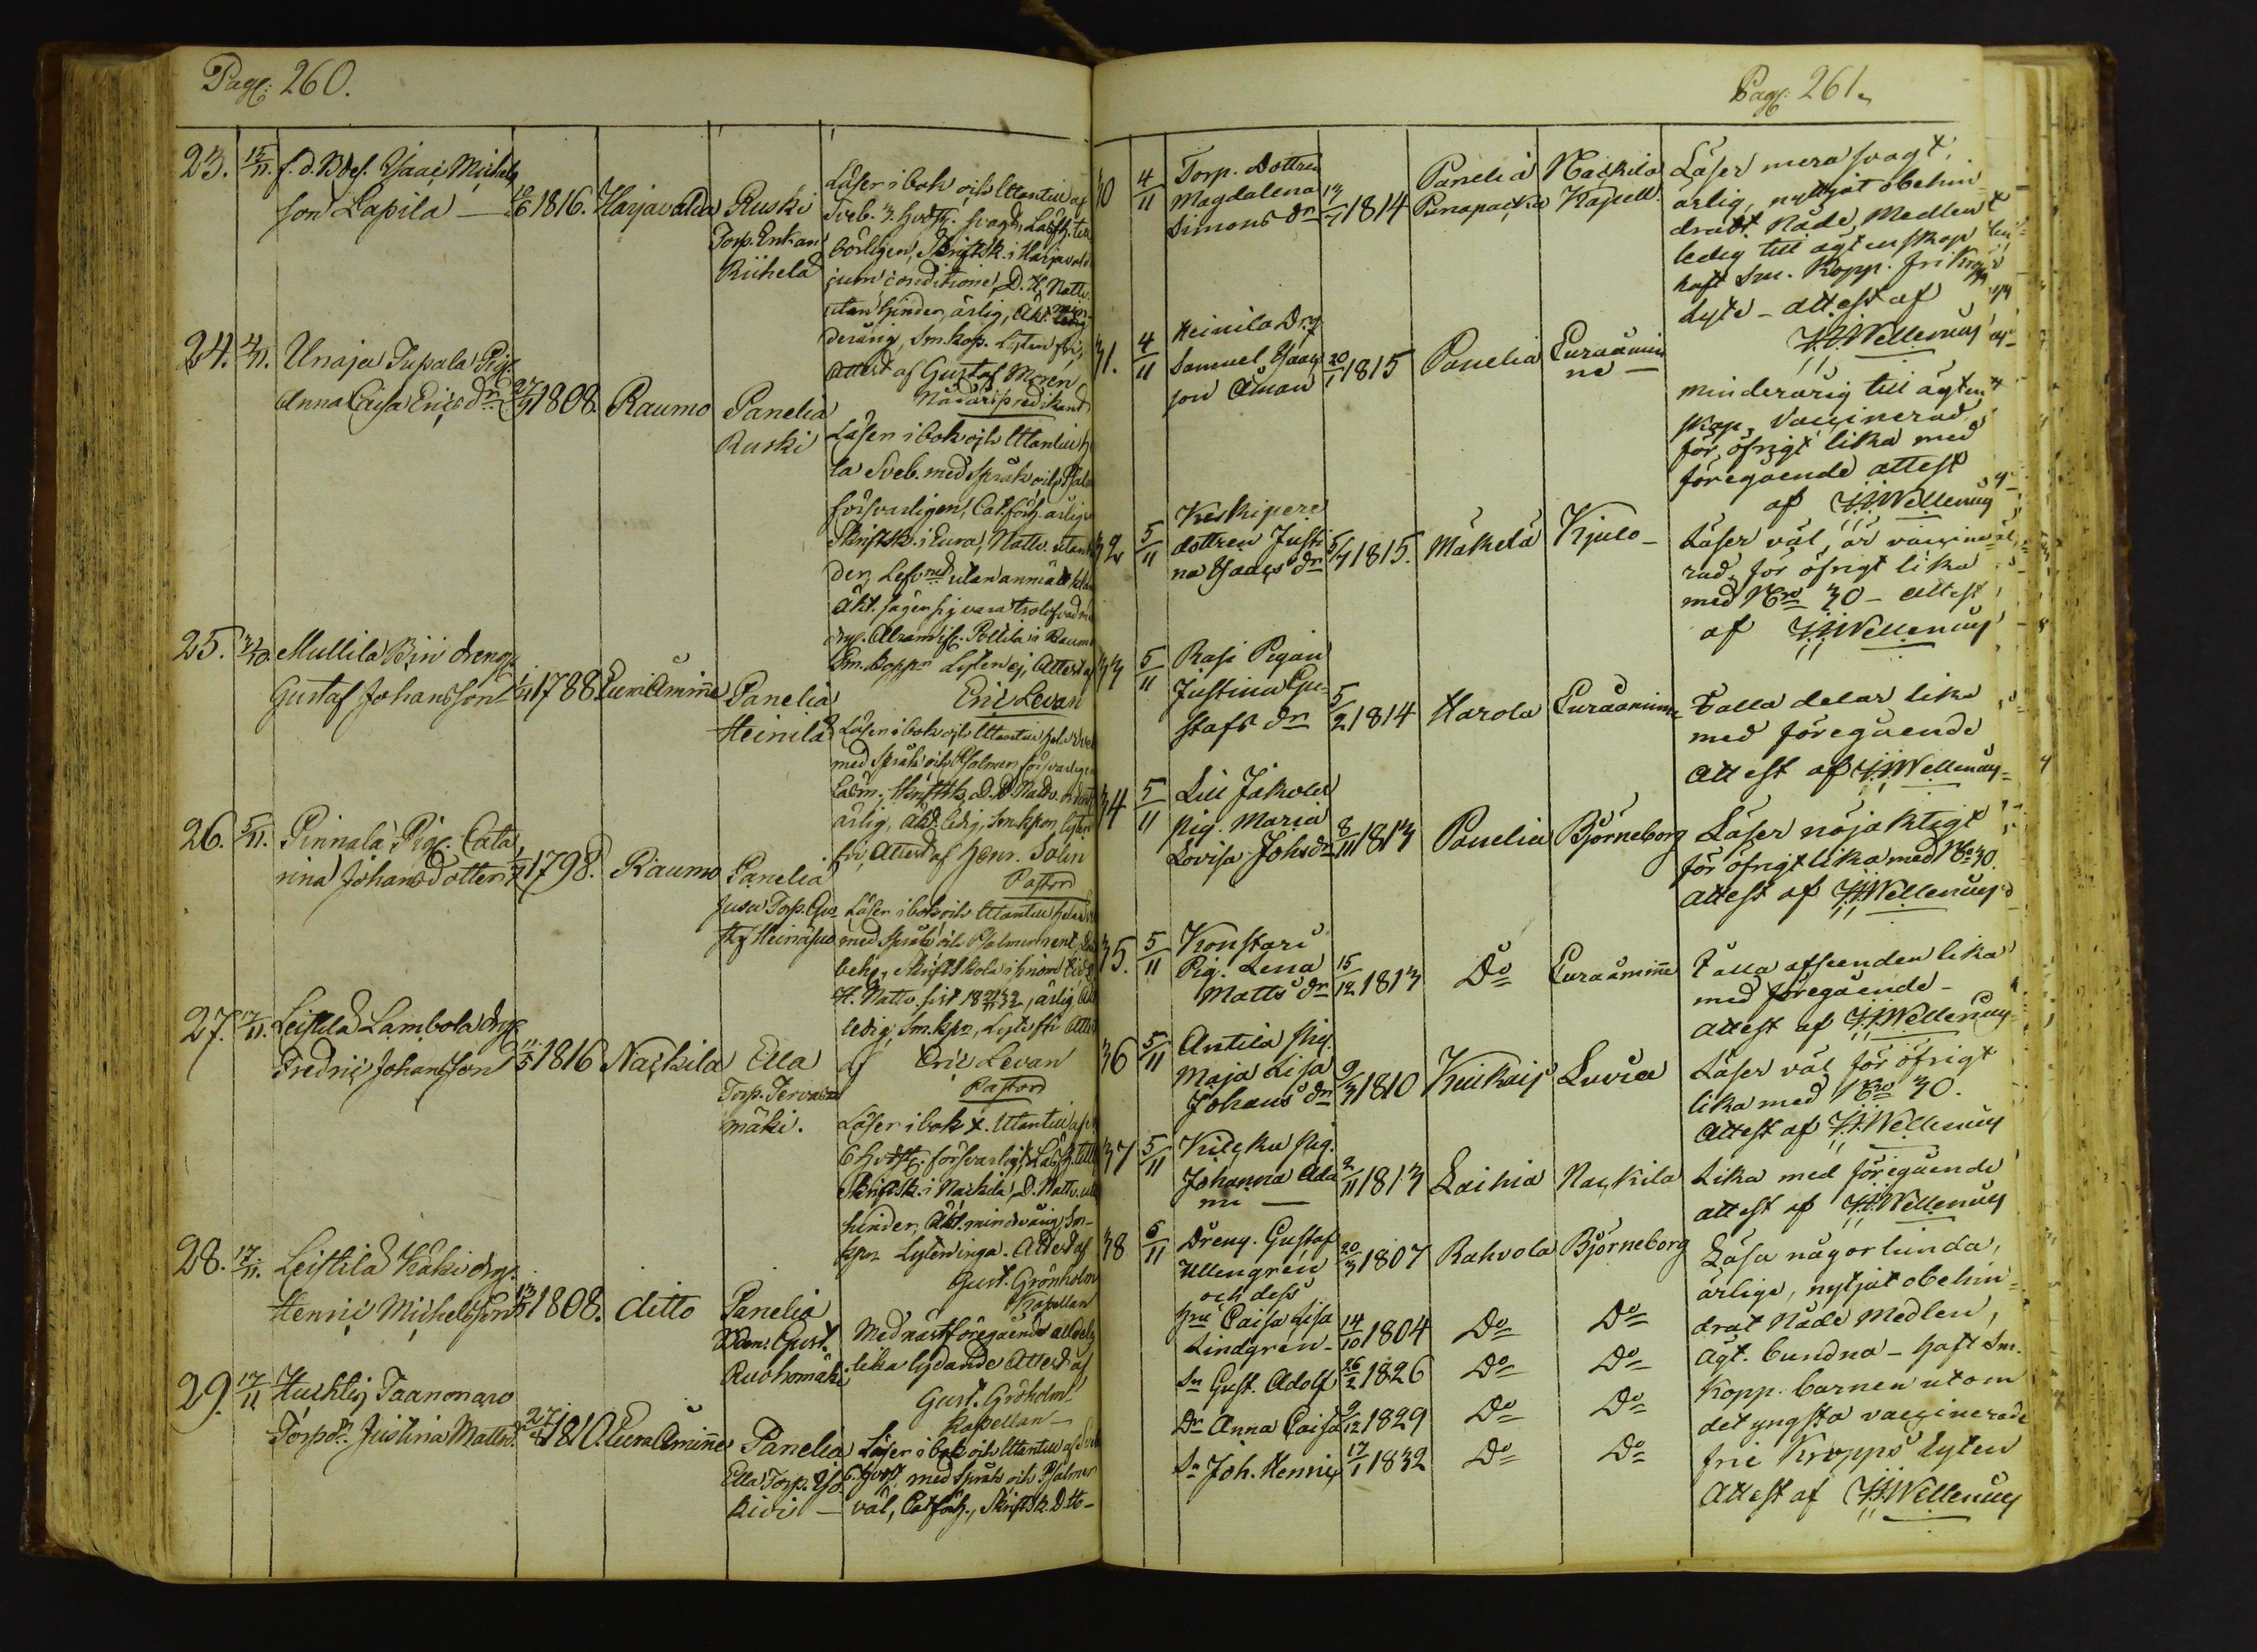 Pag: 260.
23. 15/11. f. d. Bdes. Isaac Michels
son Lapila — 1816. Harjavalda Ruski
Torp. Enkan
Riihelä
Läser i bok och Utantill af
Sveb. 3. Hvdst. svagt, Läsft. till
börligen, Skriftsk. i Harjavald
cum conditione, D. H. Nattv.
utan hinder, ärlig, Äkt. min-
derårig, Sm. kop. Lyten fri,
Attest af Gustaf Moren
Nådårspredikand
24. 4/11. Unaja Tupala Pig.
Anna Caisa Erics dr 27/9 1808. Raumo Panelia
Ruski
Läser i bok och Utantill he
la Sveb. med Språk och Psalm
försvarligen, Cat. förh. ärlig
Skriftsk. i Eura, Nattv. utan
der, Lefv.ned utan anmärk
Äkt. säger sig vara trolofvad me
drg. Abram Poltila i Raum
Sm. koppn Lyten ej, Attest af
Eric Levan
25. Mullila Bii dreng
Gustaf Johansson 1788 Euraåmine Panelia
Heinilä
Läser i bok och Utantill hela Sveb
med Språk och Psalmen försvarligen
Läsm. Skriftsk. D. H. Nattv.
ärlig, Äkt. ledig, Sm. kpon, lyten
fri, Attest af Henr. Salin
Pastor
26. 5/11. Pinnala Pig. Cata
rina Johansdotter 1798. Raumo Panelia
Jusa Torp. Gu
staf Heinäsuo
Läser i bok och Utantill hela
med Språk och Psalmer rent,
beh., Skriftskola
H. Nattv. sist 1832, ärlig
ledig, Sm. kpn, Lyte fri Attes
af Eric Levan
Pastor
27. 17/11. Leistilä Lambola drg.
Fredric Johansson 11/5 1816 Nackila Ella
Torp. Tervas
mäki.
Läser i bok x. Utantill af
6 Hvdst. försvarligt, Läsft. till
Skriftsk. i Nackila, D. Nattv. uta
hinder, Äkt. minderårig, Sm-
kpn Lyten inga. Attest af
Gust. Grönholm
Kapellan
28. 17/11. Leistilä Käki drg.
Henric Michelsson 13/5 1808. ditto Panelia
Bon. Gust.
Ruohomäki
Med nästföregående alldeles
lika lydande Attest af
Gust. Gröholm
Kapellan —
29. 17/11 Huchtis Taanonaro
Torpdr. Justina Mattsd. 27 1810. Euraåminne Panelia
Ella Torp. Yli
kivi —
Läser i bok och Utantill af Sveb
6. Hvdst. med Språk och Psalmer
väl, Catförh., Skriftsk. D. H-
Pag: 261.
30 4/11 Torp. Dottren
Magdalena
Simons dr 1814 Panelia
Punapacka Nackila
Kapell.
Läser mera svagt,
ärlig, nyttjat obehin-
dradt Nåde, Medlen
ledig till ägtenskap
haft Sm. Kopp. fri krops
Lyte — attest af
H. Wellenius
31. 4/11 Heinila Drg
Samuel Isacs
son Åman 20/1 1815 Panelia Euraåmin
ne —
minderårig till ägten
skap, Vaccinerad
för öfrigt lika med
föregående attest
af H. Wellenius
32 5/11 Keskipere
dottren Justi
na Isacs dr 1815. Mäkelä Kjulo —
Läser väl, är vaccine-
rad, för öfrigt lika
med No 30 — attest
af H. Wellenius
33 5/11 Rasi Pigan
Justina Gu-
stafs dr 5/2 1814 Harola Euraåminne
I alla delar lika
med föregående
attest af H. Wellenius
34 5/11 Lill Jakola
pig. Maria
Lovisa Johsdr 8/11 1813 Panelia Björneborg
Läser nöjaktigt
för öfrigt lika med No 30
attest af H. Wellenius
35. 5/11 Konstari
Pig. Lena
Matts dr 15/12 1813 Do Euraåmine
I alla afseenden lika
med föregående —
attest af H. Wellenius
36 5/11 Antila pig.
Maja Lisa
Johans dr 9/3 1810 Kiukais Luvia
Läser väl för öfrigt
lika med No 30.
Attest af H. Wellenius
37 5/11 pig.
Johanna Ada
mi — 2/11 1813 Laihia Nackila
Lika med föregående
attest af H. Wellenius
38 6/11 Dreng. Gustaf
Ullengrén
och dess 20/3 1807 Rahvola Björneborg
hru Caisa Lisa
Lindgren — 14/10 1804 Do Do
Sn Gust. Adolf 26/2 1826 Do Do
Dr Anna Caisa 9/12 1829 Do Do
Sn Joh. Henric 17/1 1832 Do Do
Läsa någorlunda,
ärlige, nytjat obehin-
drat Nåde Medlen,
ägt. bundna — haft Sm.
Kopp. barnen utom
det yngsta vaccinerade
frie Kropps lyten
Attest af H. Wellenius